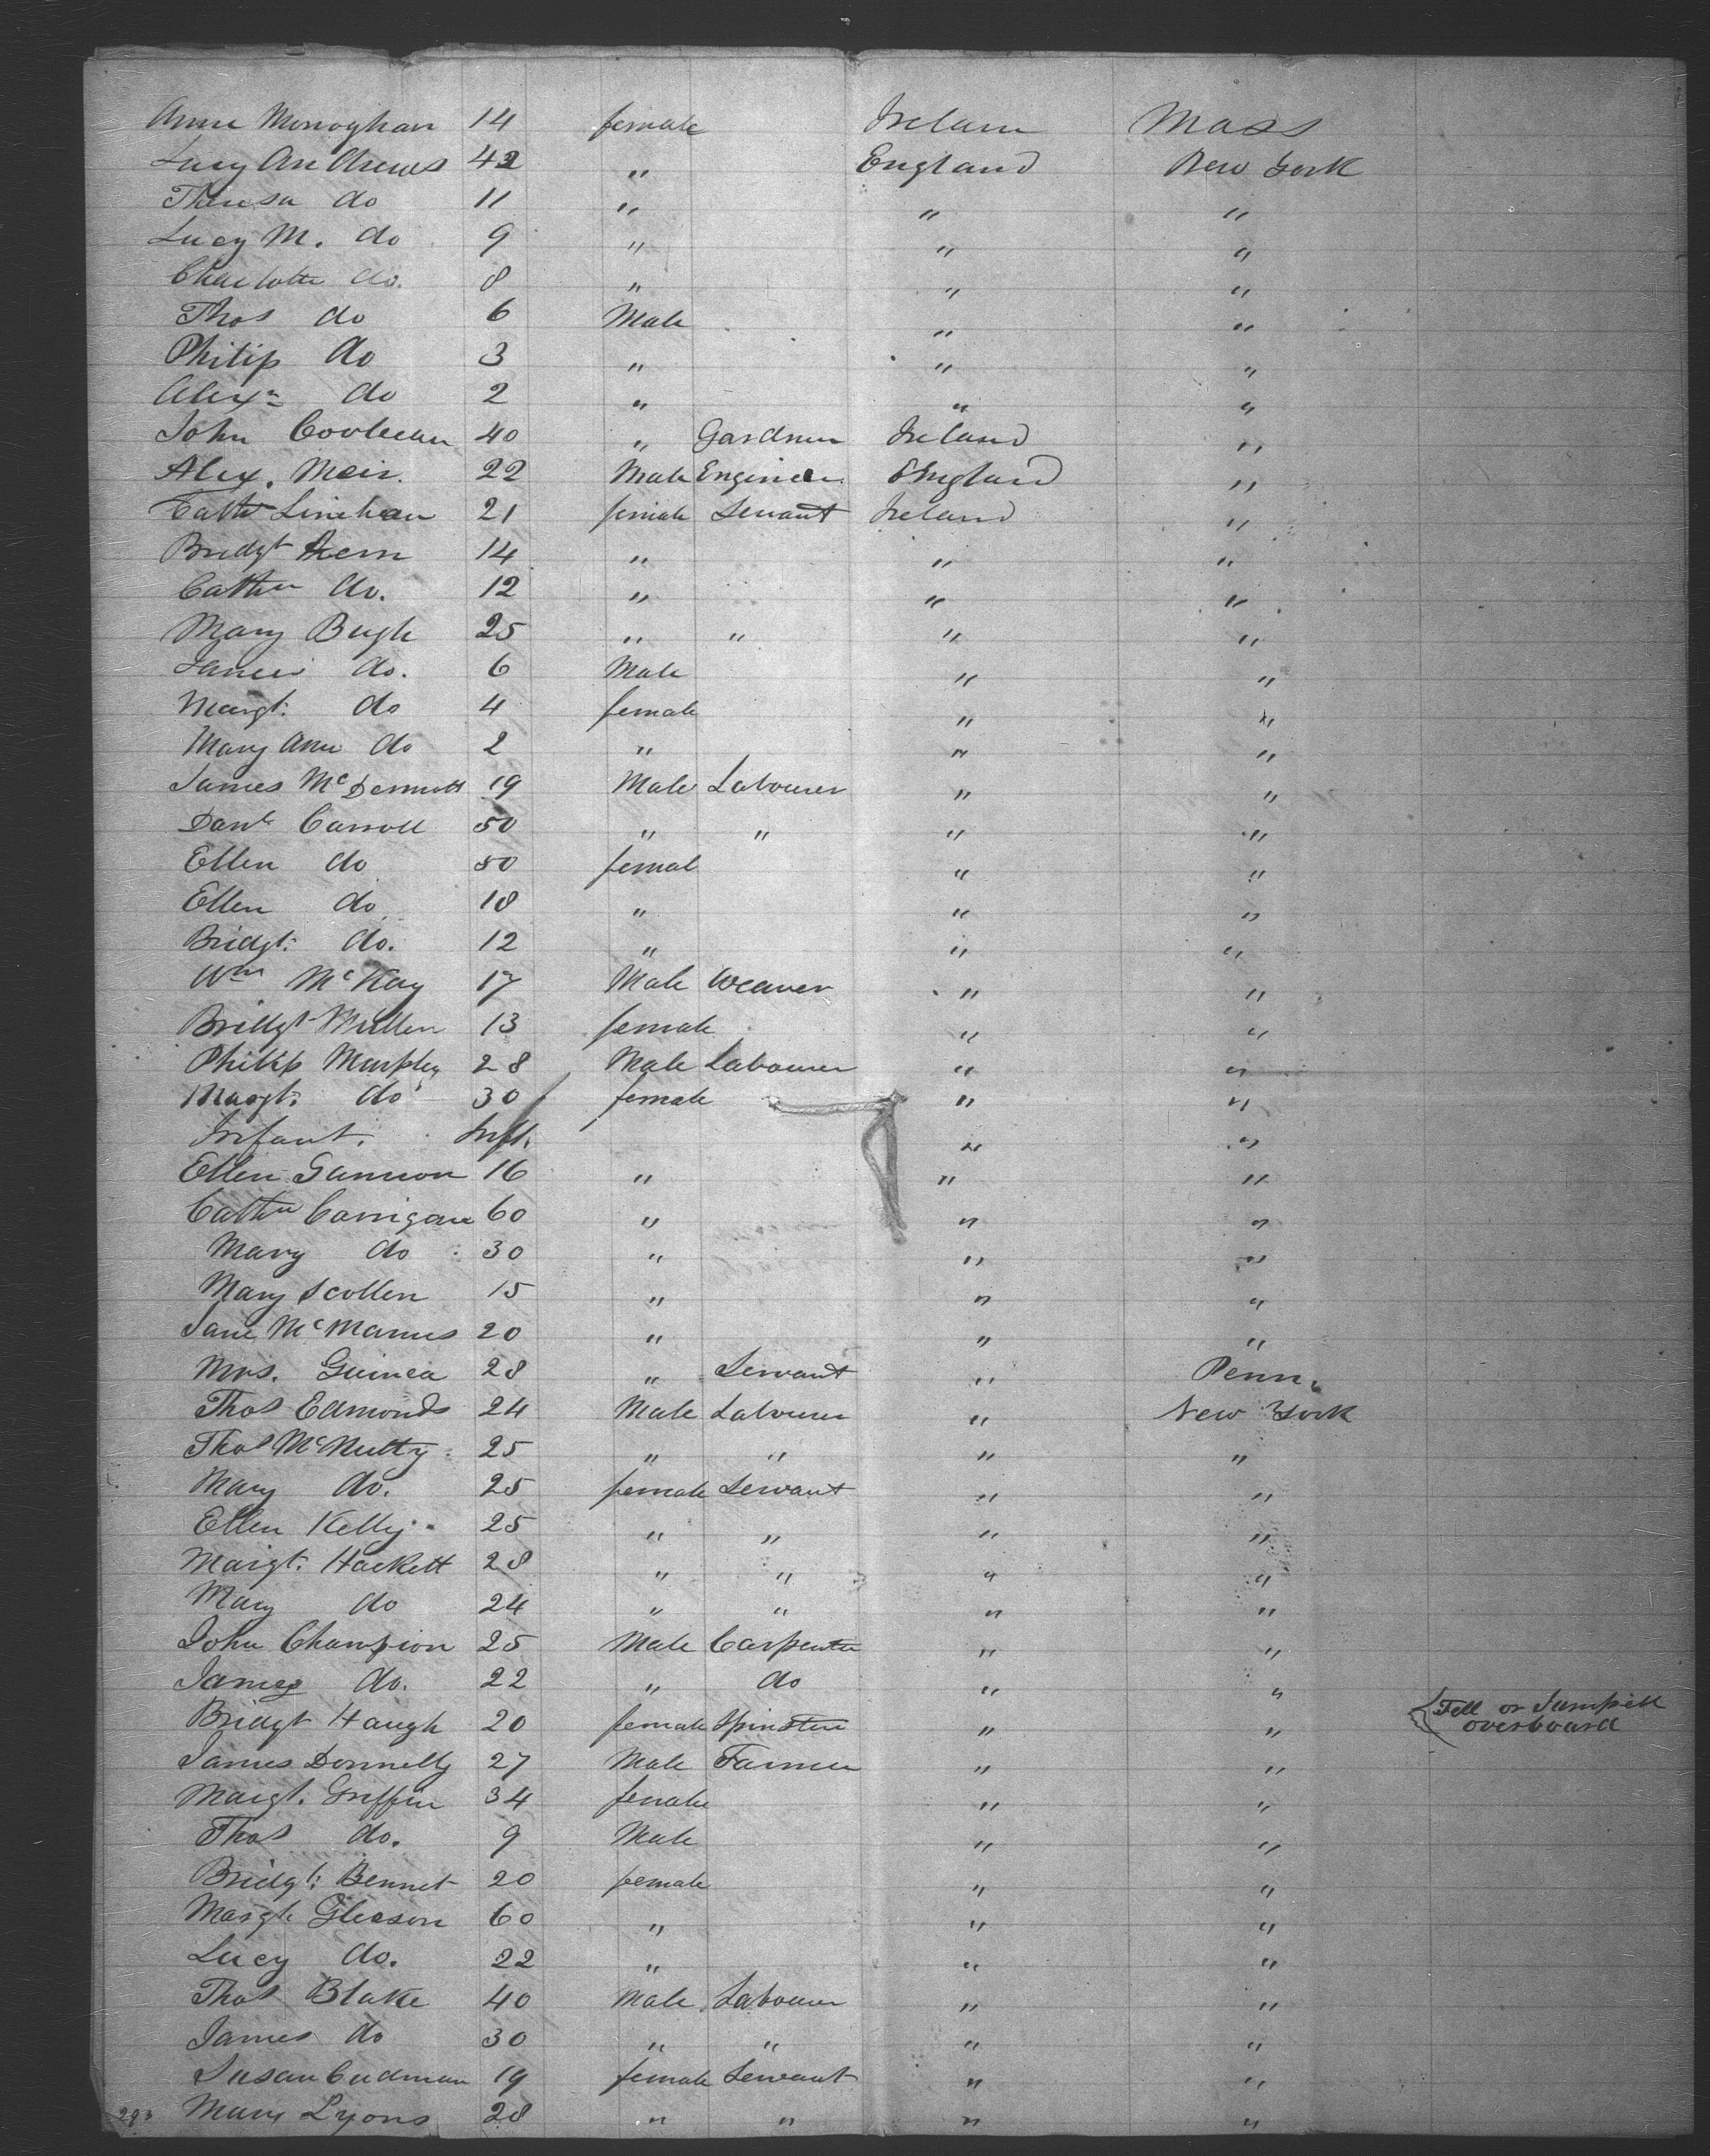 Anne Monoghan 14 female Ireland Mass
Lucy Andrews 42 female England New York
Theresa do 11 " " "
Lucy M. do 9 " " "
Charlotte do. 8 " " "
Thos do 6 Male " "
Philip do 3 " " "
Alexr do 2 " " "
John 40 " Gardner Ireland "
Alex. Meir. 22 Male Engineer England "
Cathr Linehan 21 female Servant Ireland "
Bridgt 14 " " "
Cathn do. 12 " " "
Mary Bugle 25 " " " "
James do. 6 Male " "
Margt. do 4 female " "
Mary Ann do 2 " " "
James McDermott 19 Male Labourer " "
Danl Carroll 50 " " " "
Ellen do 50 femal " "
Ellen do 18 " " "
Bridgt. do. 12 " " "
Wm McKay 17 Male Weaver " "
Bridgt Mullen 13 female " "
Philip Murphy 28 Male Labourer " "
Margt. do 30 female " "
Infant. Inft. " "
Ellen Gannon 16 " " "
Cathn Carrigan 60 " " "
Mary do 30 " " "
Mary Scollen 15 " " "
Jane McManus 20 " " "
Mrs. Guinea 28 " Servant " Penn.
Thos Edmonds 24 Male Labourer " New York
Thos McNulty 25 " " " "
Mary do. 25 female Servant " "
Ellen Kelly 25 " " " "
Margt. Hackett 28 " " " "
Mary do 24 " " " "
John Champion 25 Male Carpenter " "
James do. 22 " do " "
Bridgt Haugh 20 female Spinster " " Fell or Jumped
overboard
James Donnelly 27 Male Farmer " "
Margt. Griffin 34 female " "
Thos do. 9 Male " "
Bridgt: Bennet 20 female " "
Margt Gleason 60 " " "
Lucy do. 22 " " "
Thos Blake 40 Male Labourer " "
James do 30 " " " "
Susan Cudman 19 female Servant " "
293 Mary Lyons 28 " " " "